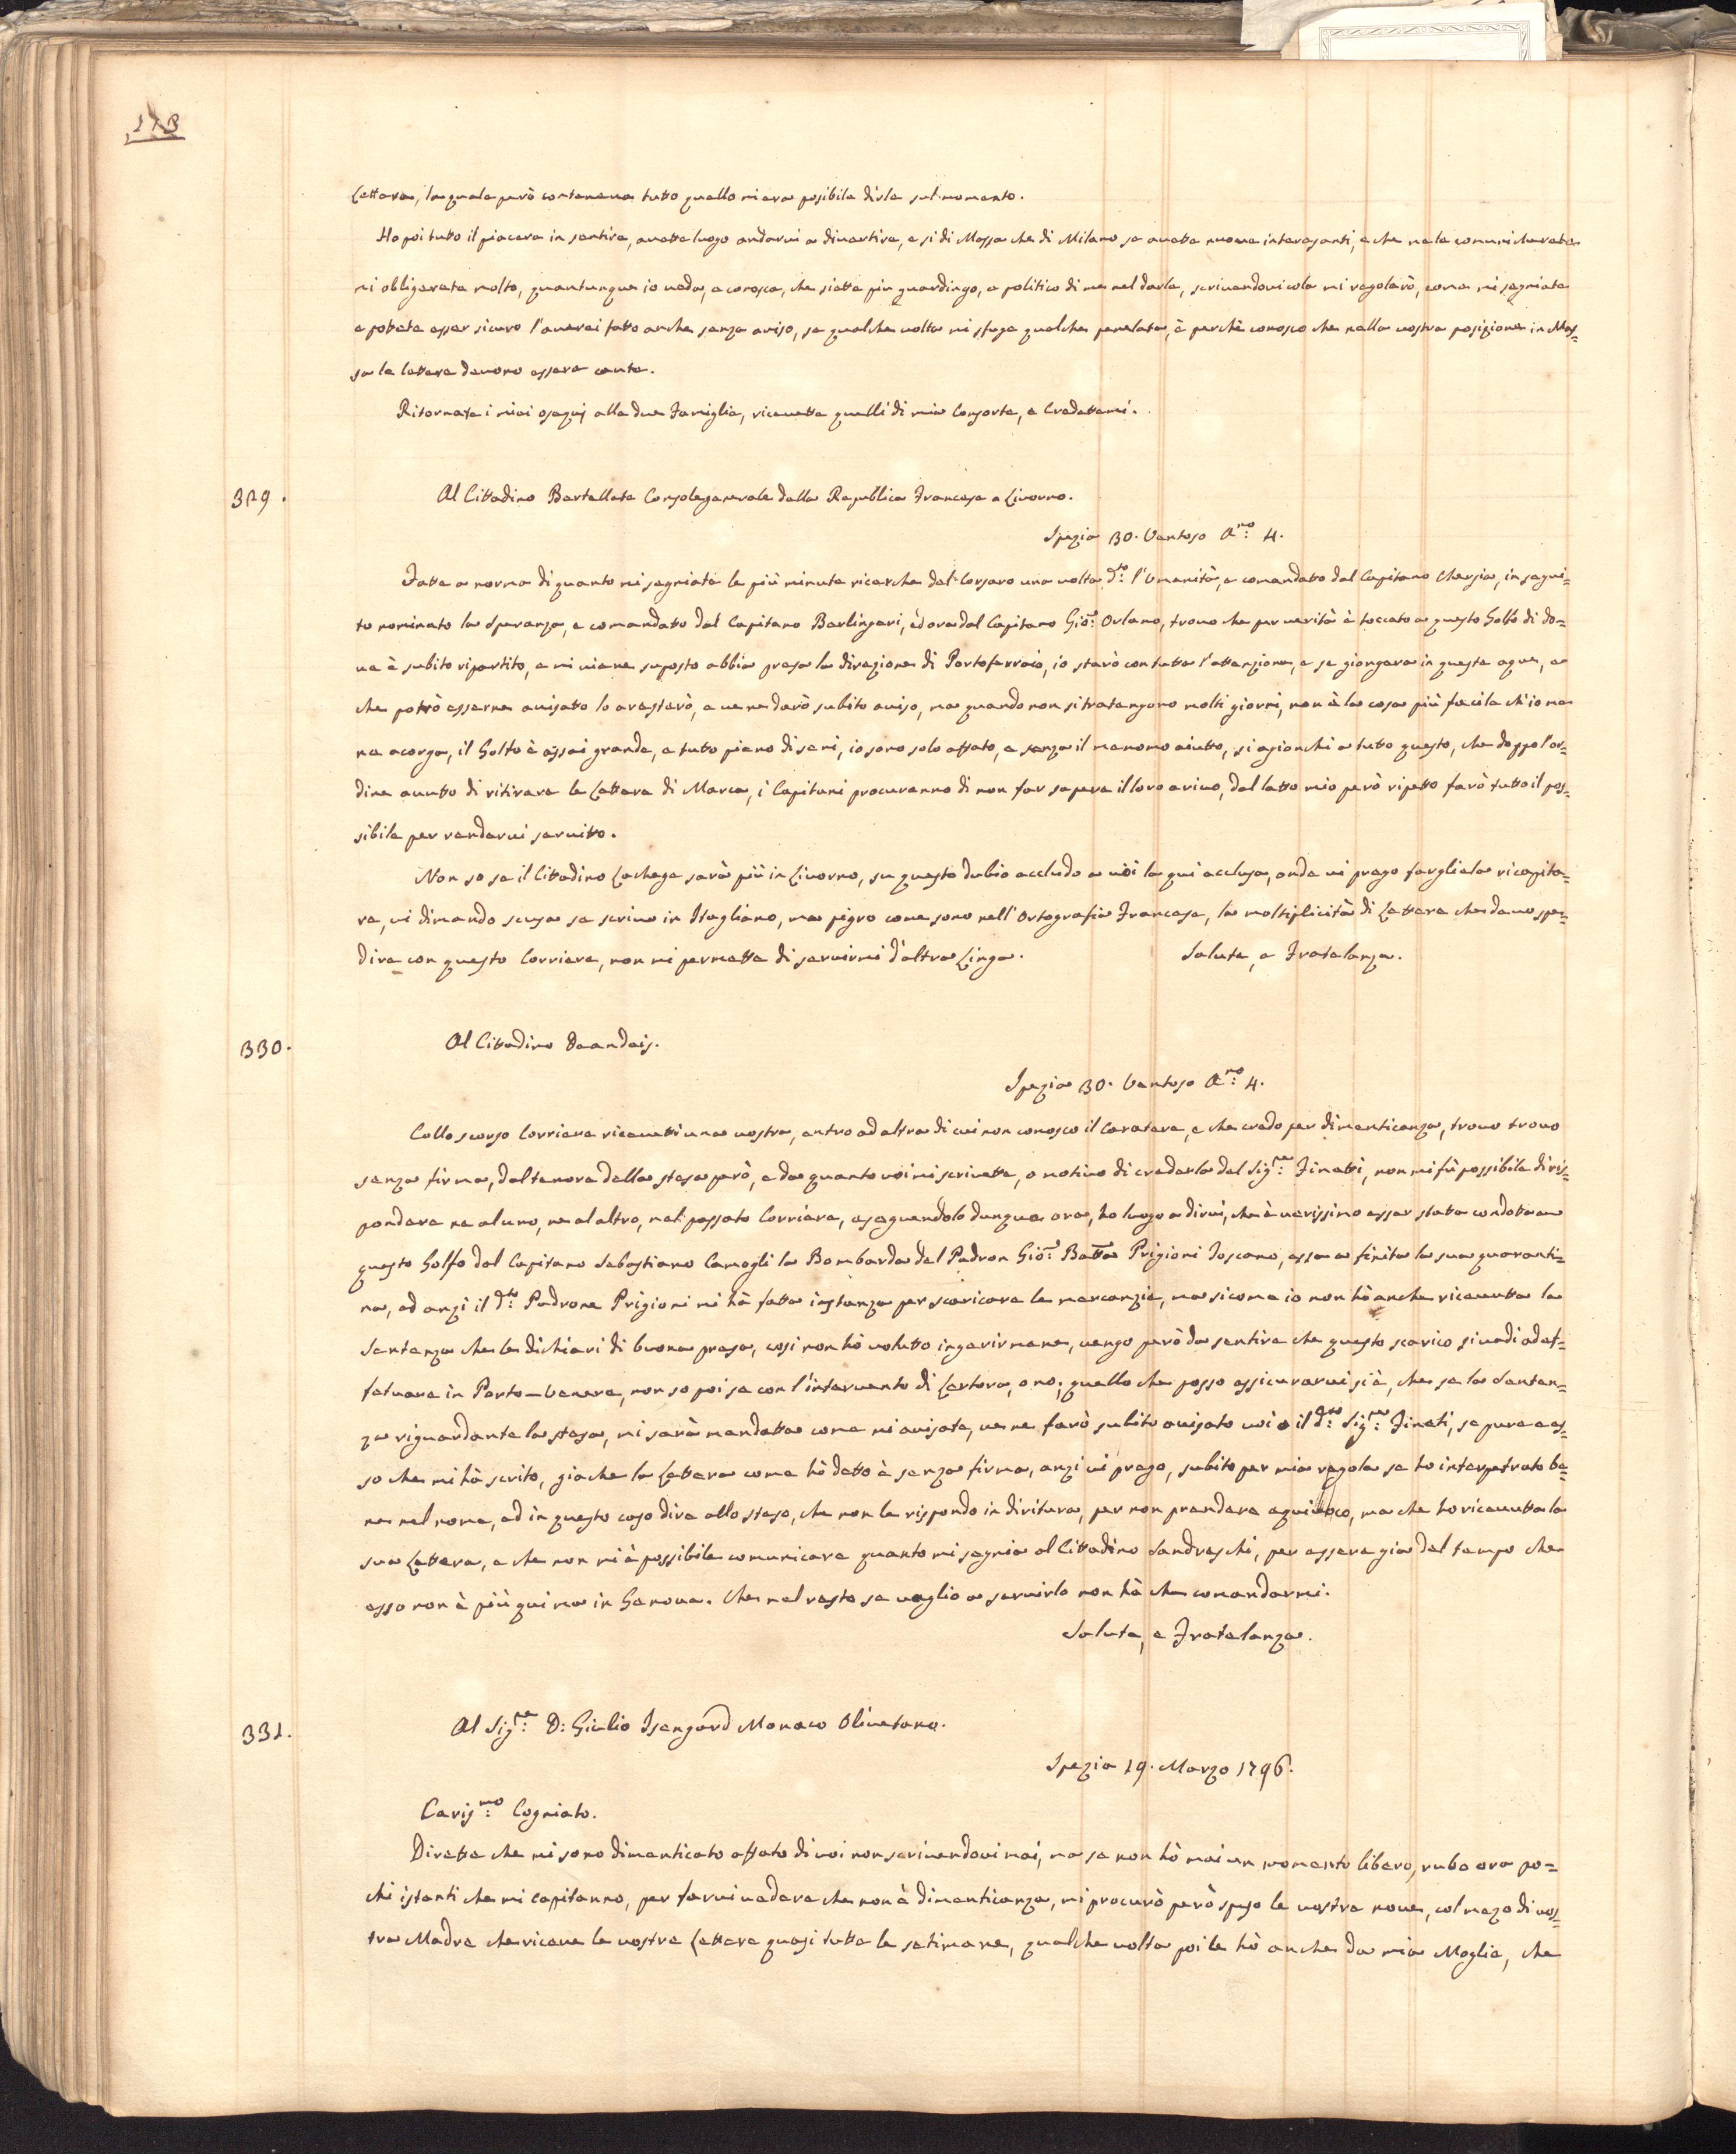 173
Lettera, la quale però conteneva tutto quello mi era posibile dirle sul momento.
Ho poi tutto il piacere in sentire, avette luogo andarvi a divertire, e si di Massa che di Milano se avette nuove interesanti, e che me le comunicherete
mi obligerete molto, quantunque io vedo, e conosco, che siatte piu guardingo, e politico di me nel darle, scrivendovicole mi regolerò, come mi segniate
e potete esser sicuro l'averei fatto anche senza aviso, se qualche volta mi sfuge qualche penelata, è perchè conosco che nella vostra posizione in Mas=
sa le lettere devono essere caute.
Ritornate i miei osequj alle due Famiglie, ricevette quelli di mia Consorte, e Credettemi.
329.
Al Cittadino Bertellete Consolegenerale della Republica Francese a Livorno.
Spezia 30. Ventoso A.no 4.
Fatte a norma di quanto mi segniate le più minute ricerche del Corsaro una volta d.to l'Umanità, e comandatto dal Capitano Chersia, in segui=
to nominato la Speranza, e comandatto dal Capitano Berlingeri, ed ora dal Capitano Gio: Orlano, trovo che per verità è toccato a questo Golfo di do=
ve è subito ripartito, e mi viene suposto abbia presa la direzione di Portoferraio, io starò con tutta l'attenzione, e se giongera in queste aque, e
che potrò esserne avisatto lo aresterò, e ve ne darò subito aviso, ma quando non si tratengono molti giorni, non è la cosa più facile ch'io me
ne acorga, il Golfo è assai grande, e tutto pieno di seni, io sono solo affato, e senza il menomo aiutto, si agionchi a tutto questo, che doppo l'or=
dine avutto di ritirare le Lettere di Marca, i Capitani procureranno di non far sapere il loro arivo, dal latto mio però ripetto farò tutto il pos=
sibile per rendervi servitto.
Non so se il Cittadino Lachege sarà più in Livorno, su questo dubio accludo a voi la qui acclusa, onde vi prego fargliela ricapita=
re, vi dimando scusa se scrivo in Itagliano, ma pigro come sono nell'Ortografia Francese, la moltiplicità di Lettere che devo spe=
dire con questo Corriere, non mi permette di servirmi d'altra Linga. Salute, e Fratelanza.
330.
Al Cittadino Deandeis.
Spezia 30. Ventoso A.no 4.
Collo scorso Corriere ricevetti una vostra, entro ad altra di cui non conosco il Caratere, e che credo per dimenticanza, trovo trovo
senza firma, dal tenore della stesa però, e da quanto voi mi scrivette, o motivo di crederla del Sig.re Finetti, non mi fù possibile di ris=
pondere ne al uno, ne al altro, nel passato Corriere, eseguendolo dunque ora, ho luogo a dirvi, che è verissimo esser stata condotta a
questo Golfo dal Capitano Sebastiano Camogli la Bombarda del Padron Gio: Batta Prigioni Toscano, essa a finita la sua quaranti=
na, ed anzi il d.to Padrone Prigioni mi hà fatta instanza per scaricare le mercanzie, ma sicome io non hò anche ricevutta la
Sentenza che la dichiari di buona presa, cosi non hò volutto ingerirmene, vengo però da sentire che questo scarico si vadi ad ef=
fetuare in Porto-Venere, non so poi se con l'intervento di Certora, o no; quello che posso assicurarvi si è, che se la Senten=
za riguardante la stesa, mi sarà mandatta come mi avisate, ve ne farò subito avisato voi o il d.to Sig.re Fineti, se pure è es=
so che mi hà scrito, gia che la Lettera come hò detto è senza firma, anzi vi prego, subito per mia regola se ho interpetrato be=
ne nel nome, ed in questo caso dire allo steso, che non le rispondo in diritura, per non prendere equivoco, ma che ho ricevutta la
sua Lettera, e che non mi è possibile comunicare quanto mi segnia al Cittadino Sandreschi, per essere gia del tempo che
esso non è più qui ma in Genova. Che nel resto se vaglio a servirlo non hà che comandarmi.
Salute, e Fratelanza.
331.
Al Sig.re D: Giulio Isengard Monaco Olivetano.
Spezia 19. Marzo 1796.
Caris.mo Cogniato.
Direte che mi sono dimenticato affato di voi non scrivendovi mai, ma se non hò mai un momento libero, rubo ora po=
chi istanti che mi capitanno, per farvi vedere che non è dimenticanza, mi procurò però speso le vostre nove, col mezo di vos=
tra Madre che riceve le vostre Lettere quasi tutte le setimane, qualche volta poi le hò anche da mia Moglie, che